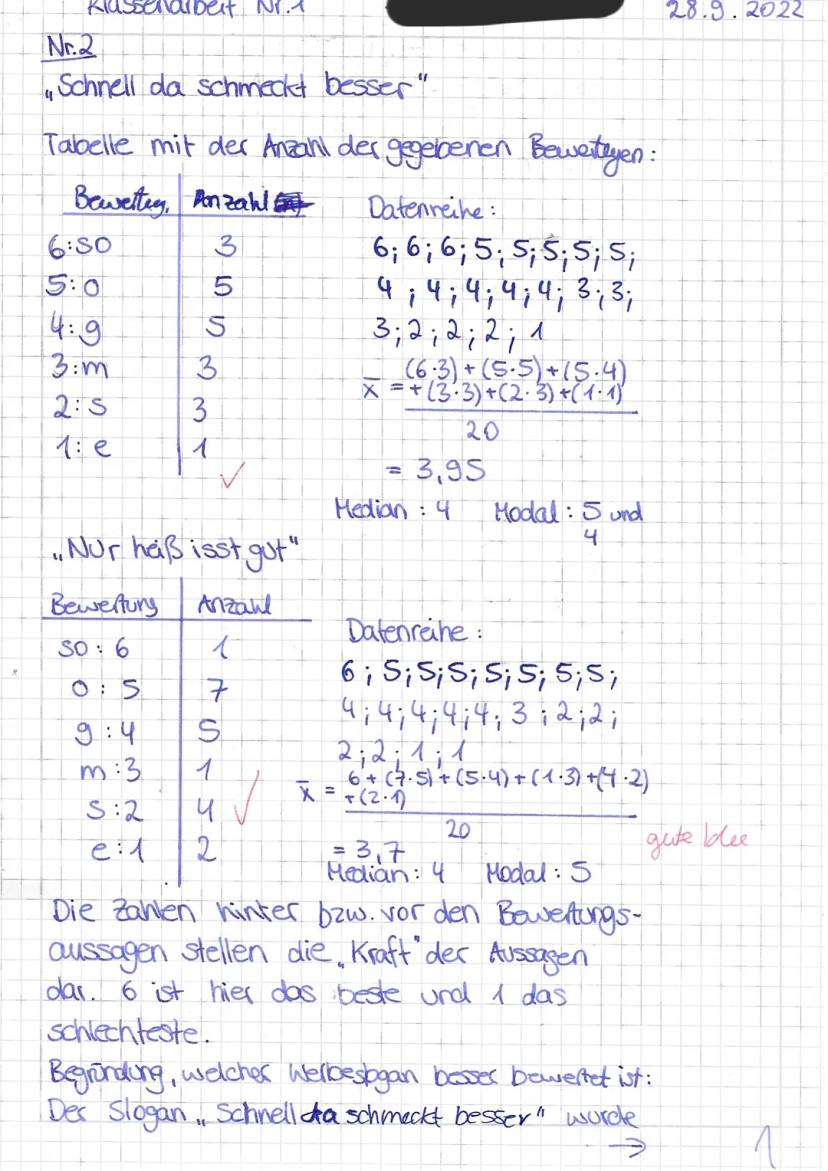 Klassenarbeit Nr.1
28.9.2022
Nr.2
„Schnell da schmeckt besser"
Tabelle mit der Anzahl der gegebenen Bewertungen:
Bewertung Anzahl
6:so 3
5:o 5
4:g 5
3:m 3
2:s 3
1:e 1
✓
Datenreihe:
6; 6; 6; 5; 5; 5; 5; 5;
4; 4; 4; 4; 4; 3; 3;
3; 2; 2; 2; 1
x̄ = (6·3)+(5·5)+(5·4)
+(3·3)+(2·3)+(1·1)
20
= 3,95
Median: 4 Modal: 5 und
4
„Nur heiß isst gut"
Bewertung Anzahl
so: 6 1
o: 5 7
g: 4 5
m: 3 1
s: 2 4
e: 1 2
✓
Datenreihe:
6; 5; 5; 5; 5; 5; 5; 5;
4; 4; 4; 4; 4; 3; 2; 2;
2; 2; 1; 1
x̄ = 6+(7·5)+(5·4)+(1·3)+(4·2)
+(2·1)
20
= 3,7
gute Idee
Median: 4 Modal: 5
Die Zahlen hinter bzw. vor den Bewertungs-
aussagen stellen die „Kraft" der Aussagen
dar. 6 ist hier das beste und 1 das
schlechteste.
Begründung, welcher Werbeslogan besser bewertet ist:
Der Slogan „Schnell da schmeckt besser" wurde
→ 1